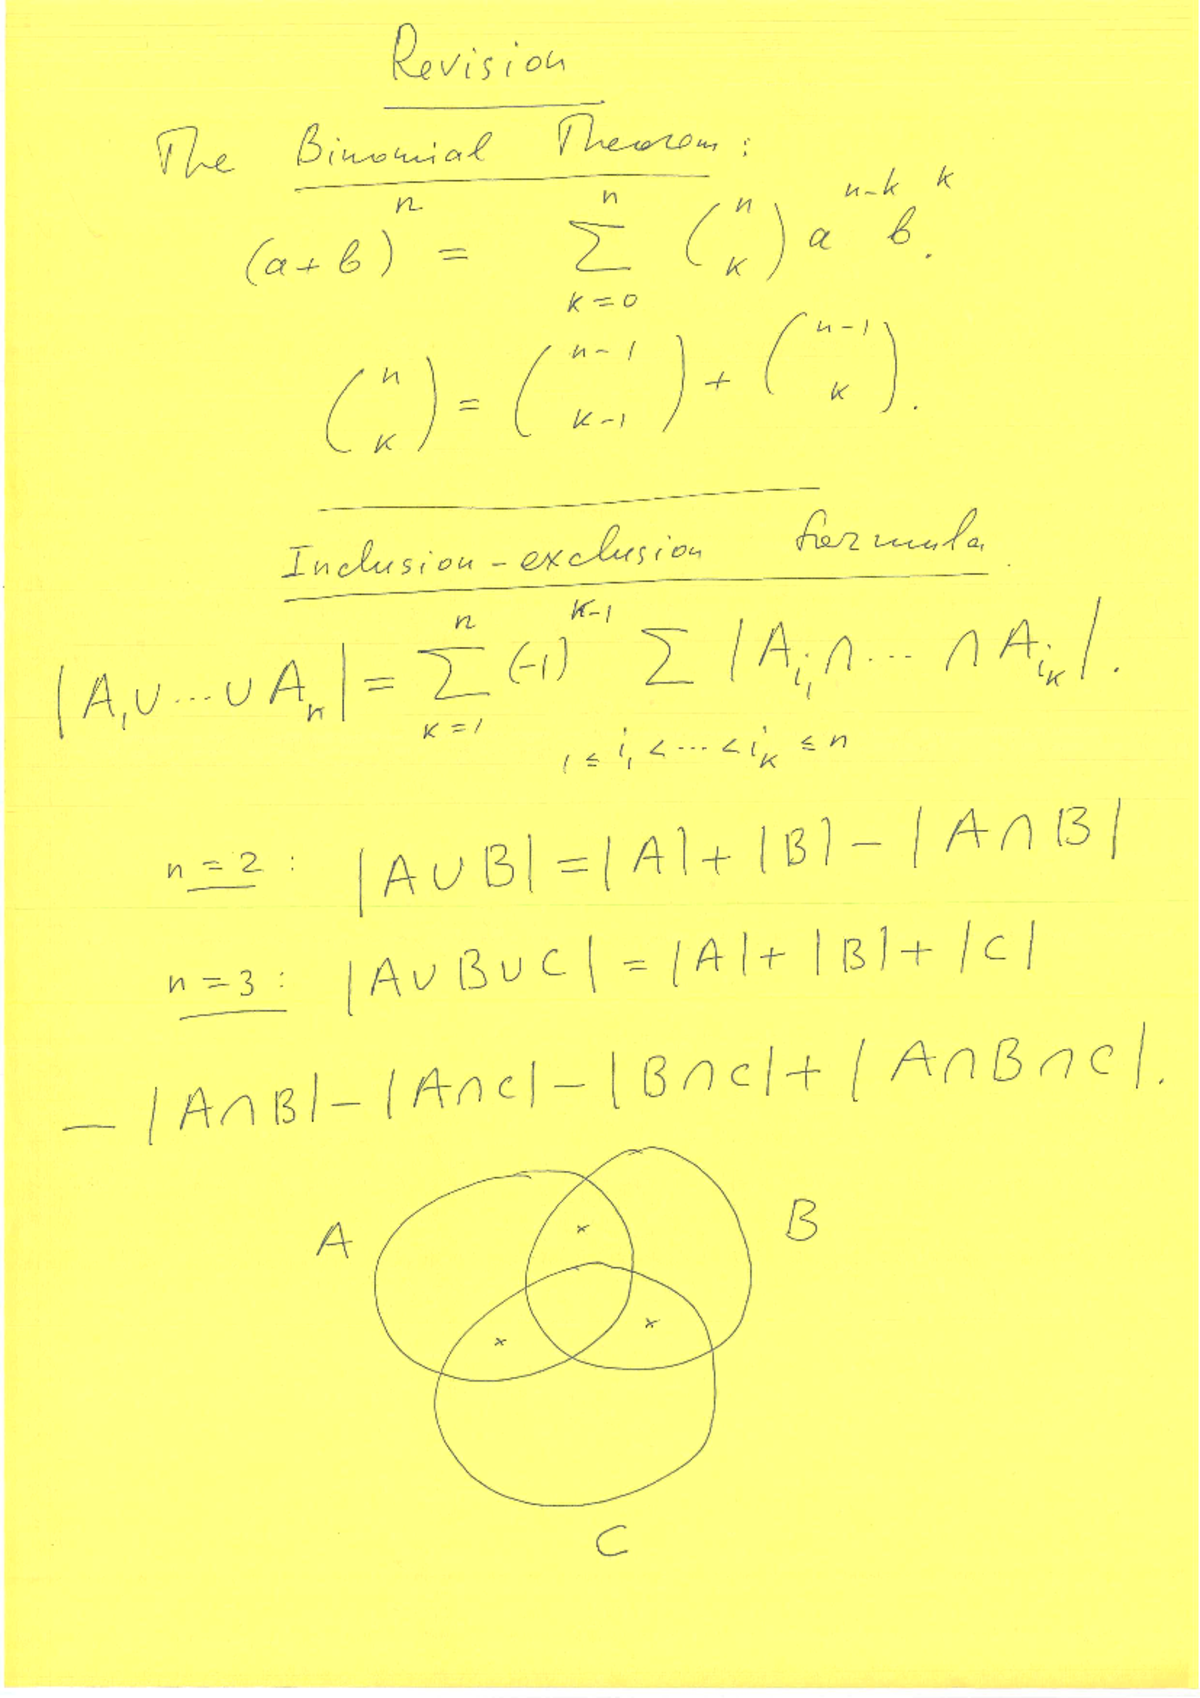 Revision
The Binomial Theorem:
(a+b)^n = ∑_{k=0}^{n} (n k) a^{n-k} b^k.
(n k) = (n-1 k-1) + (n-1 k).
Inclusion-exclusion formula.
|A_1∪...∪A_n| = ∑_{k=1}^{n} (-1)^{k-1} ∑_{1≤i_1<...<i_k≤n} |A_{i_1}∩...∩A_{i_k}|.
n=2: |A∪B|=|A|+|B|-|A∩B|
n=3: |A∪B∪C|=|A|+|B|+|C|
-|A∩B|-|A∩C|-|B∩C|+|A∩B∩C|.
A B
C